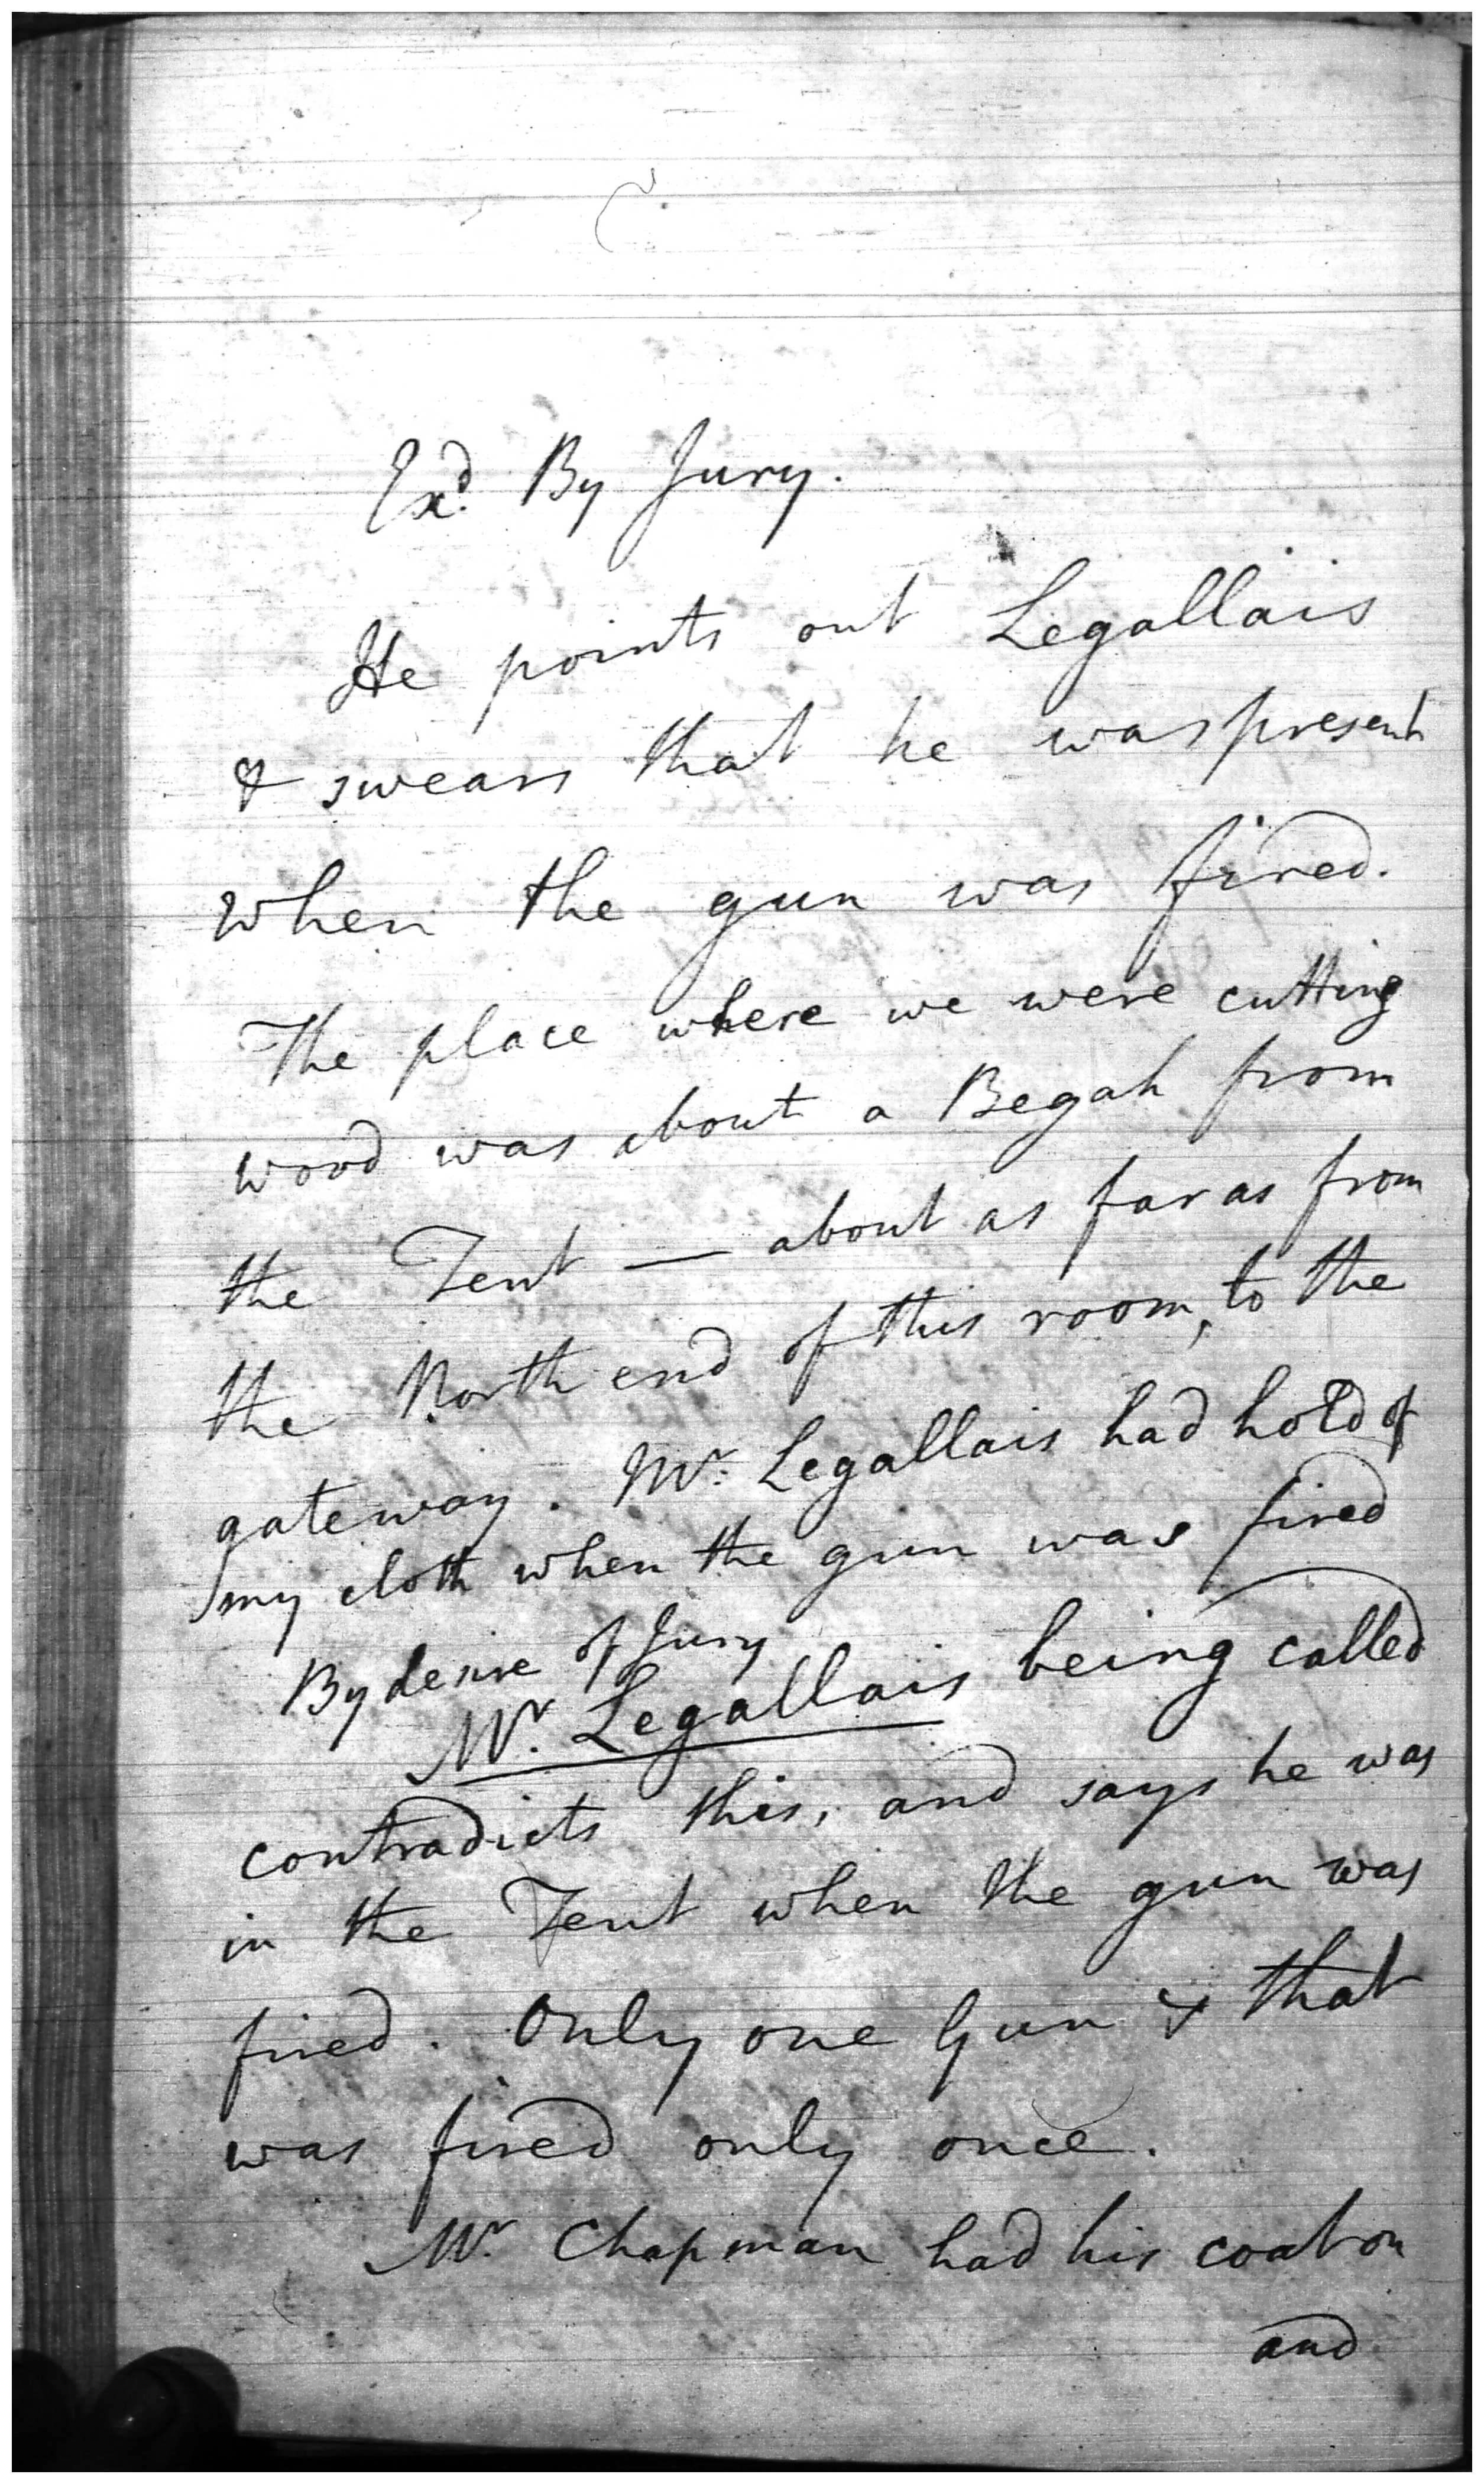 Exd. By Jury.
He points out Legallais
& swears that he was present
when the gun was fired.
The place where we were cutting
wood was about a Begah from
the Tent — about as far as from
the North end of this room, to the
gateway. Mr. Legallais had hold of
my cloth when the gun was fired
By desire of Jury
Mr. Legallais being called
contradicts this, and says he was
in the Tent when the gun was
fired. Only one Gun & that
was fired only once.
Mr. Chapman had his coat on
and